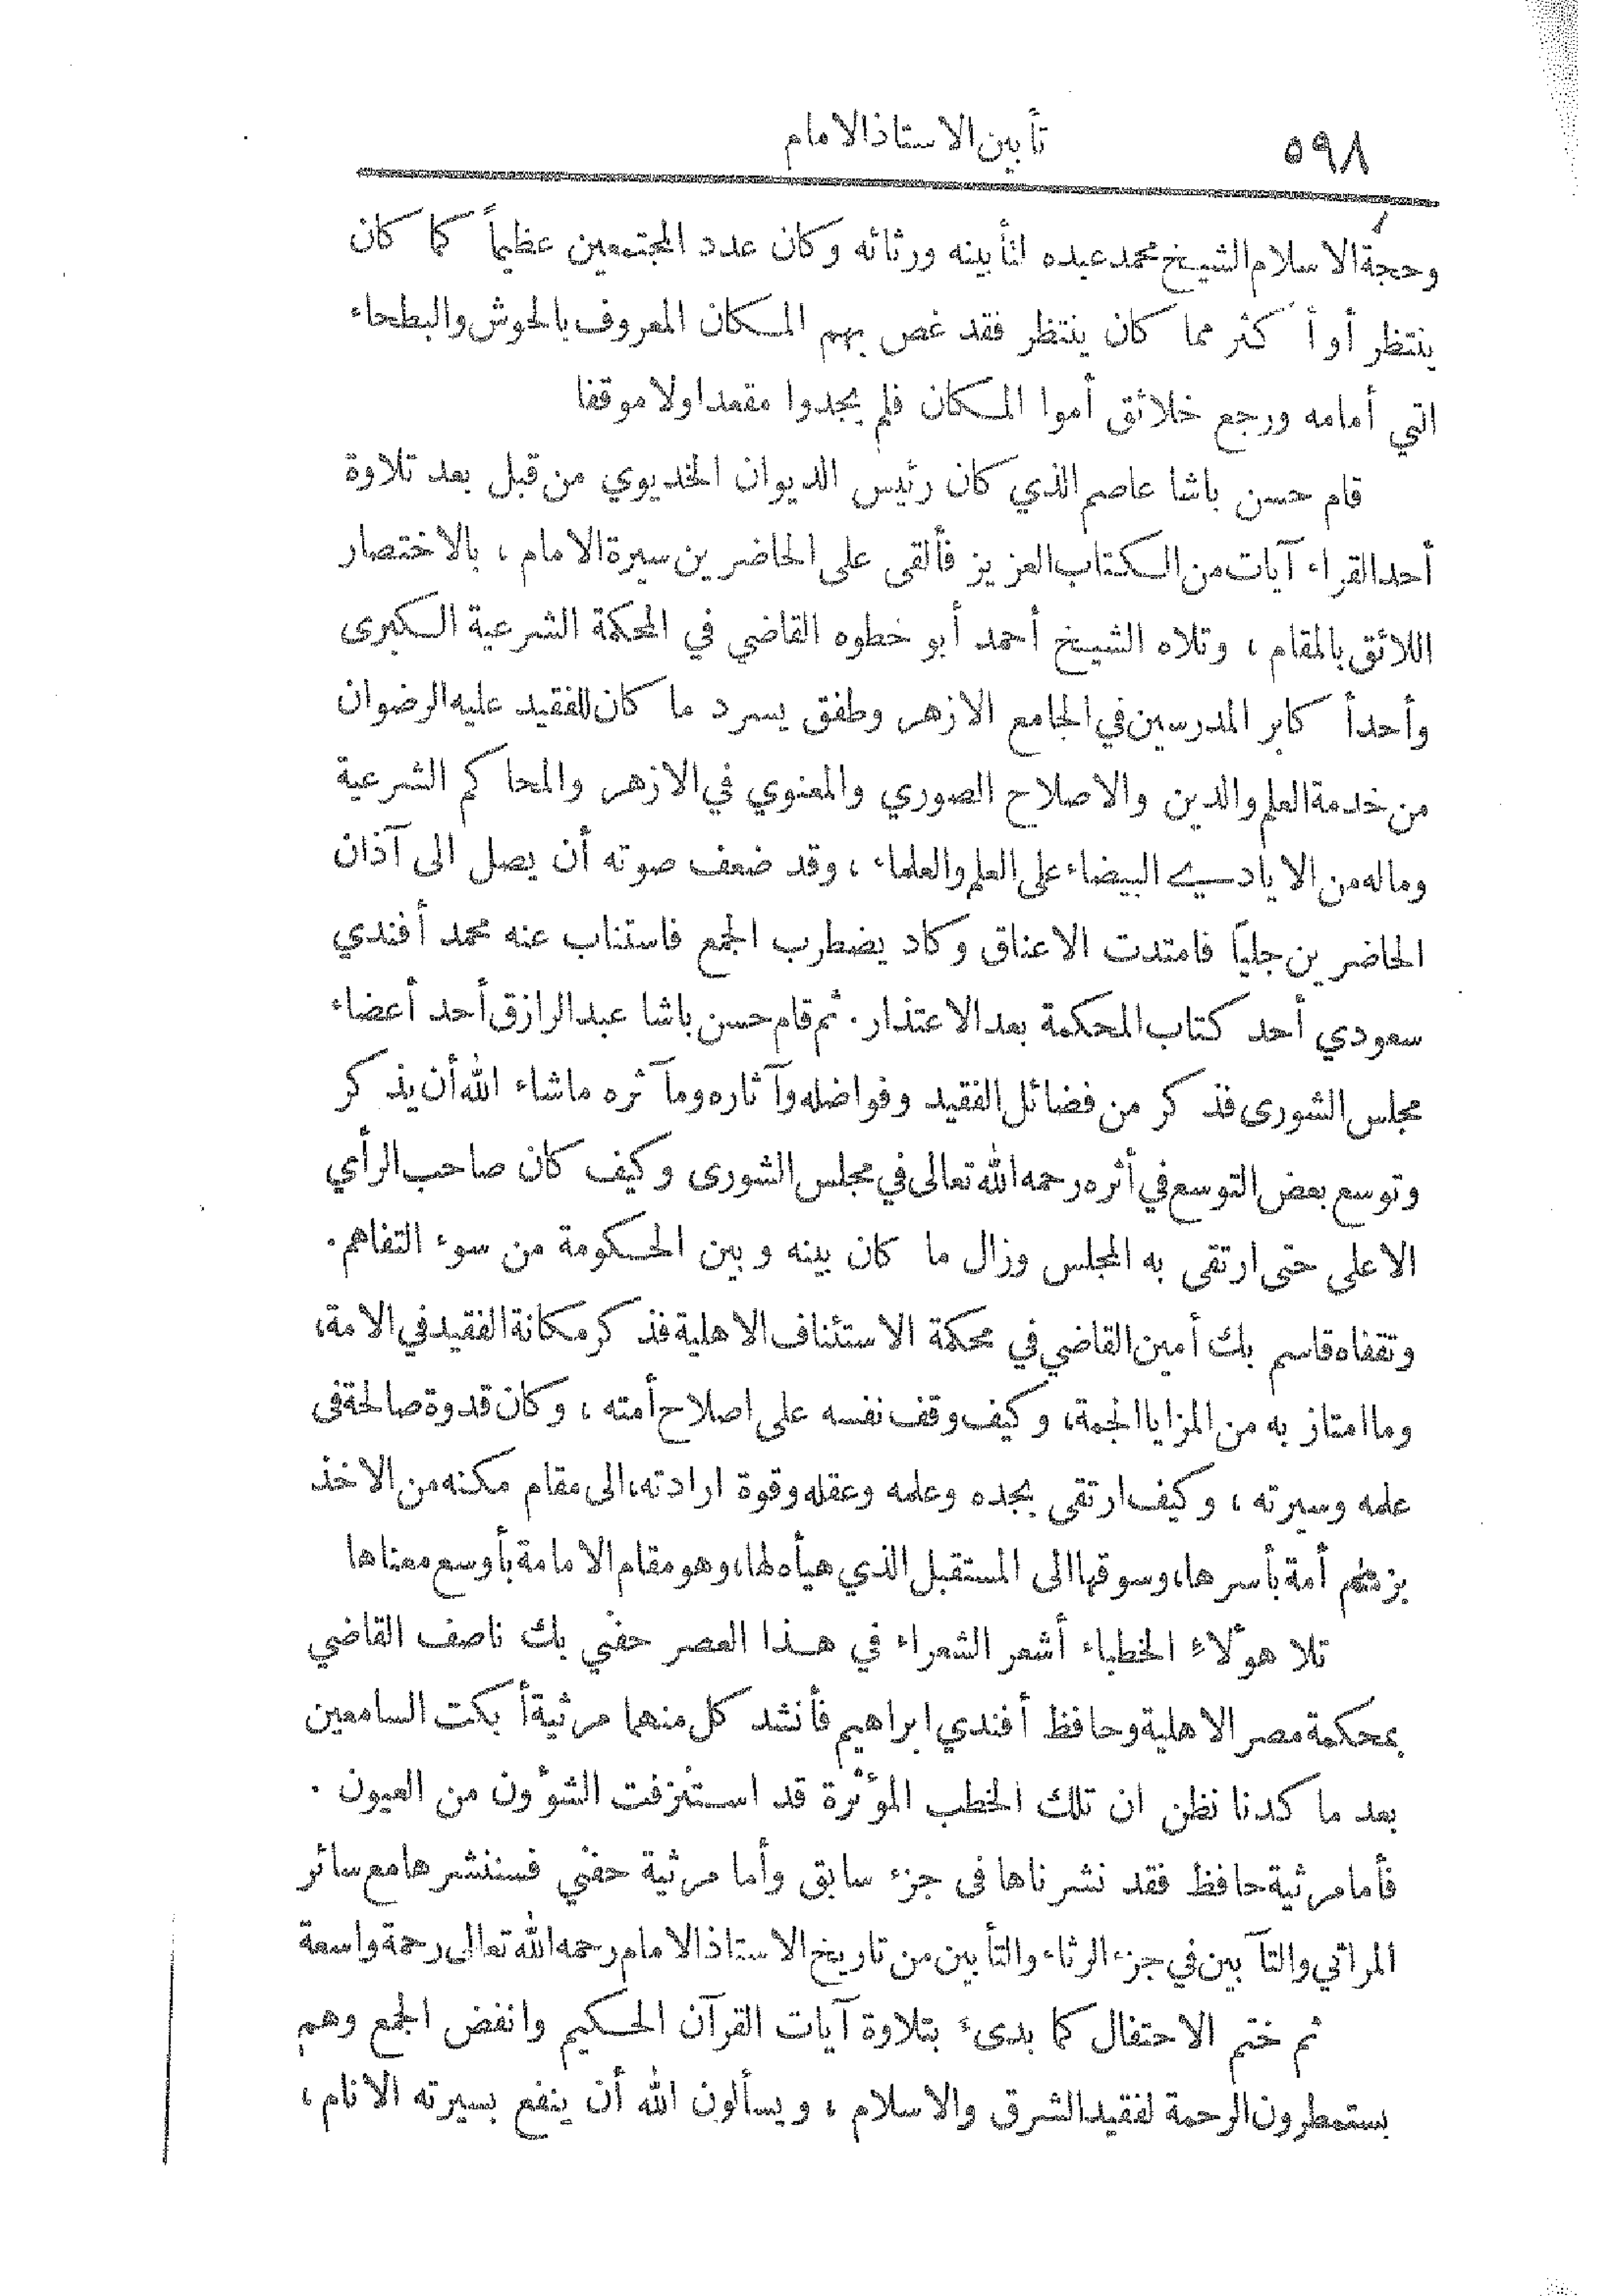 ٥٩٨
تأبين الاستاذ الامام
وحجة الاسلام الشيخ محمد عبده لتأبينه ورثائه وكان عدد المجتمعين عظيماً كما كان
ينتظر أو أكثر مما كان ينتظر فقد غص بهم المكان المعروف بالحوش والبطحاء
التي أمامه ورجع خلائق أموا المكان فلم يجدوا مقعدا ولا موقفا
قام حسن باشا عاصم الذي كان رئيس الديوان الخديوي من قبل بعد تلاوة
أحد القراء آيات من الكتاب العزيز فألقى على الحاضرين سيرة الامام ، بالاختصار
اللائق بالمقام ، وتلاه الشيخ أحمد أبو خطوه القاضي في المحكمة الشرعية الكبرى
وأحد أكابر المدرسين في الجامع الازهر وطفق يسرد ما كان للفقيد عليه الرضوان
من خدمة العلم والدين والاصلاح الصوري والمعنوي في الازهر والمحاكم الشرعية
وماله من الايادي البيضاء على العلم والعلماء ، وقد ضعف صوته أن يصل الى آذان
الحاضرين جلياً فامتدت الاعناق وكاد يضطرب الجمع فاستناب عنه محمد أفندي
سعودي أحد كتاب المحكمة بعد الاعتذار . ثم قام حسن باشا عبد الرازق أحد أعضاء
مجلس الشورى فذكر من فضائل الفقيد وفواضله وآثاره ومآثره ماشاء الله أن يذكر
وتوسع بعض التوسع في أثره رحمه الله تعالى في مجلس الشورى وكيف كان صاحب الرأي
الاعلى حتى ارتقى به المجلس وزال ما كان بينه وبين الحكومة من سوء التفاهم .
وتقفاه قاسم بك أمين القاضي في محكمة الاستئناف الاهلية فذكر مكانة الفقيد في الامة،
وما امتاز به من المزايا الجمة، وكيف وقف نفسه على اصلاح أمته ، وكان قدوة صالحة فى
علمه وسيرته ، وكيف ارتقى بجده وعلمه وعقله وقوة ارادته، الى مقام مكنه من الاخذ
أمة بأسرها، وسوقها الى المستقبل الذي هيأه لها، وهو مقام الامامة بأوسع معناها
تلا هؤلاء الخطباء أشعر الشعراء في هذا العصر حفني بك ناصف القاضي
بمحكمة مصر الاهلية وحافظ أفندي ابراهيم فأنشد كل منهما مرثية أبكت السامعين
بعد ما كدنا نظن ان تلك الخطب المؤثرة قد استنزفت الشؤون من العيون .
فأما مرثية حافظ فقد نشرناها فى جزء سابق وأما مرثية حفني فسننشرها مع سائر
المراثي والتآبين في جزء الرثاء والتأبين من تاريخ الاستاذ الامام رحمه الله تعالى رحمة واسعة
ثم ختم الاحتفال كما بدىء بتلاوة آيات القرآن الحكيم وانفض الجمع وهم
يستمطرون الرحمة لفقيد الشرق والاسلام ، ويسألون الله أن ينفع بسيرته الانام ،